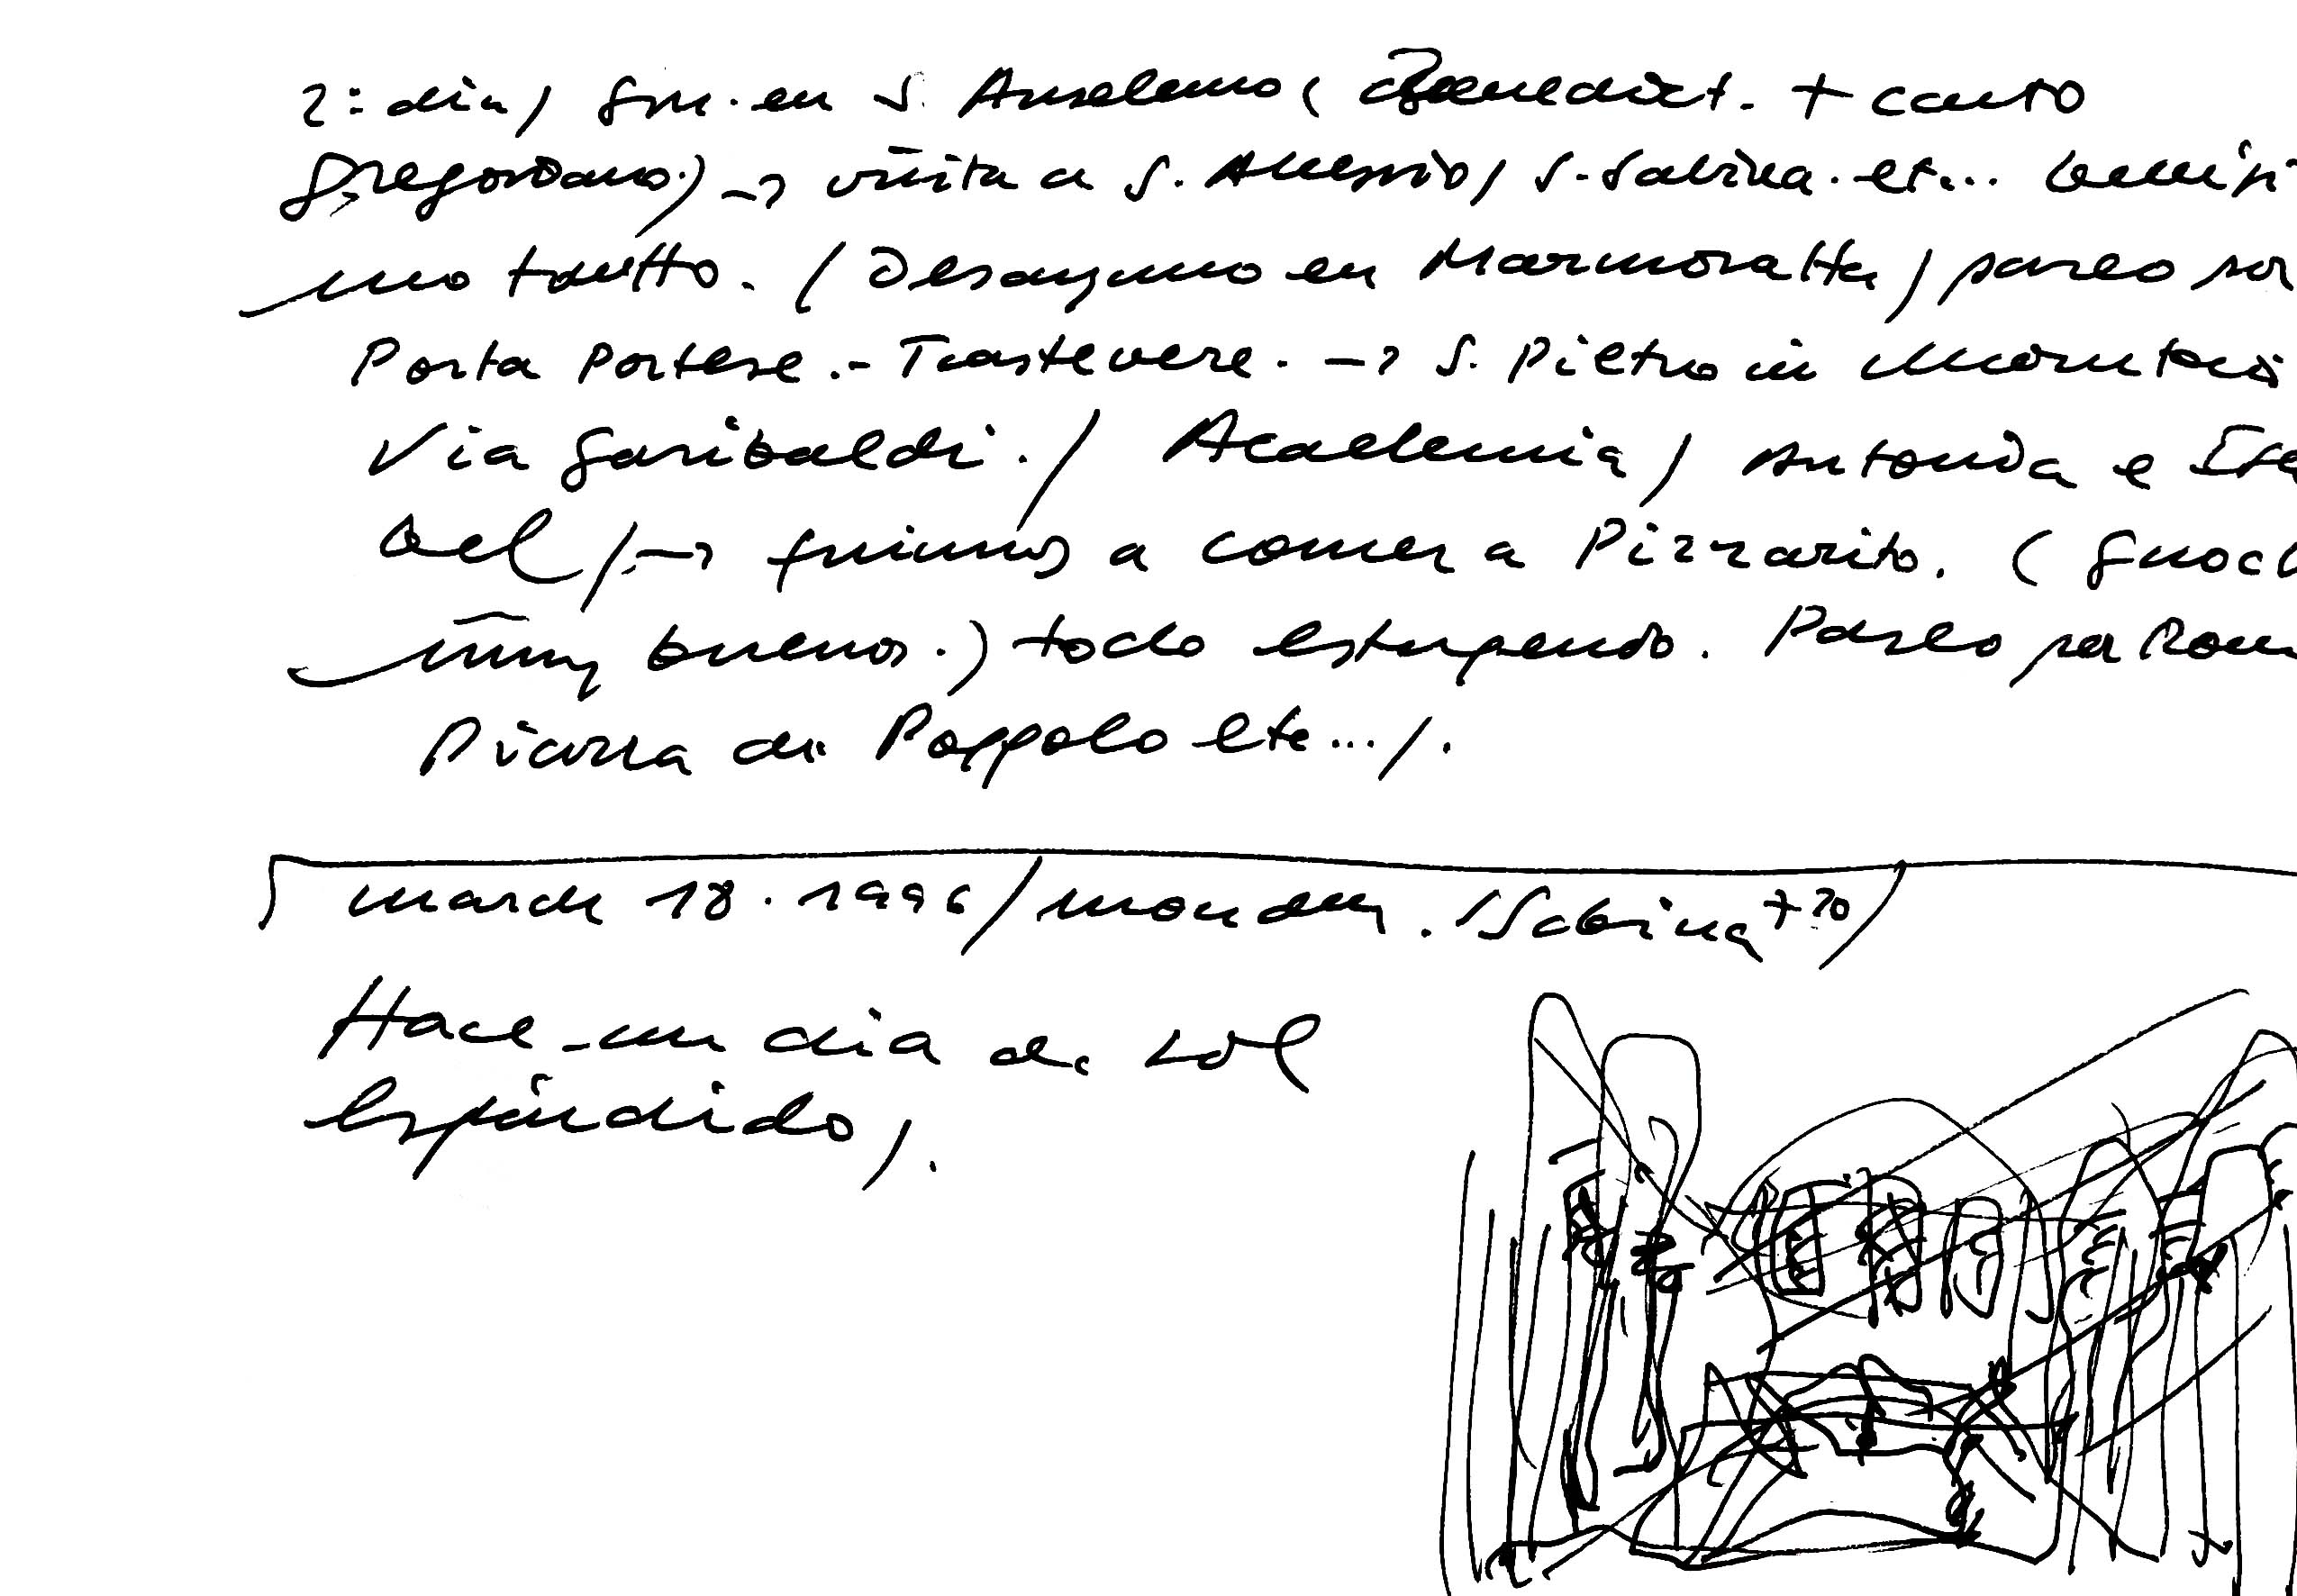 2: dia / gm. en S. Anselmo ( Benedict. + canto
gregoriano.) → visita a S. Alessio / S. Sabina. etc... bellisi
mo tutto. / Desayuno en Marmoratta / paseo por
Porta Portese .- Trastevere. → S. Pietro in Montori
Via Garibaldi. / Academia / Antonia e Isa
bel / → fuimos a comer a Pizzarito. ( gnocc
muy buenos.) todo estupendo. Paseo por Rom
Piazza di Poppolo etc... / .
march 18. 1996 / monday. / Sabina +20 /
Hace un dia de sol
espléndido / .